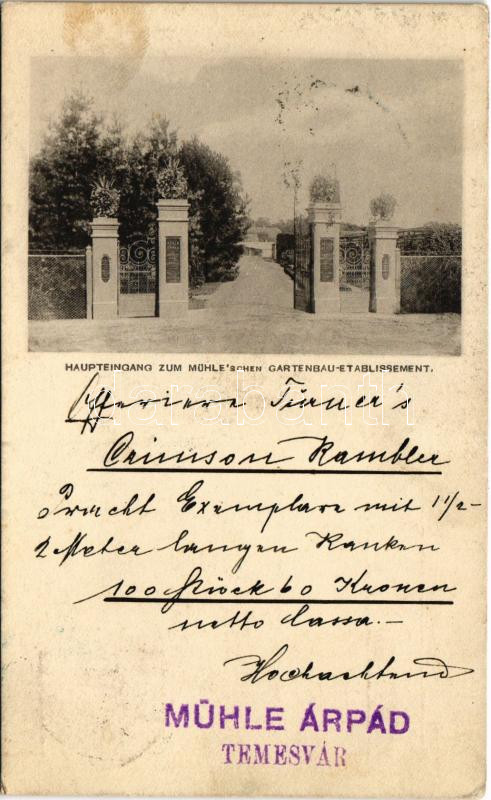 HAUPTEINGANG ZUM MÜHLE'SCHEN GARTENBAU-ETABLISSEMENT.
Offeriere Turner's
Crimson Rambler
Pracht Exemplare mit 1 1/2-
2 Meter langen Ranken
100 Stück 60 Kronen
netto Cassa.-
Hochachtend
MÜHLE ÁRPÁD
TEMESVÁR
darabanth